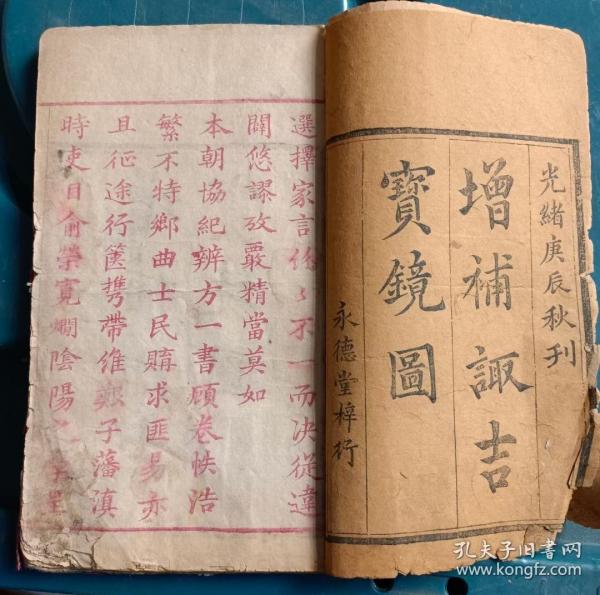 光緒庚辰秋刊
增補諏吉
寶鏡圖
永德堂梓行
選擇家言 不一而決從違
闢悠謬攷覈精當莫如
本朝協紀辨方一書顧卷帙浩
繁不特鄉曲士民購求匪易亦
且征途行篋携帶維艱子藩滇
時吏目俞榮寬嫻陰陽
孔夫子旧书网
www.kongfz.com